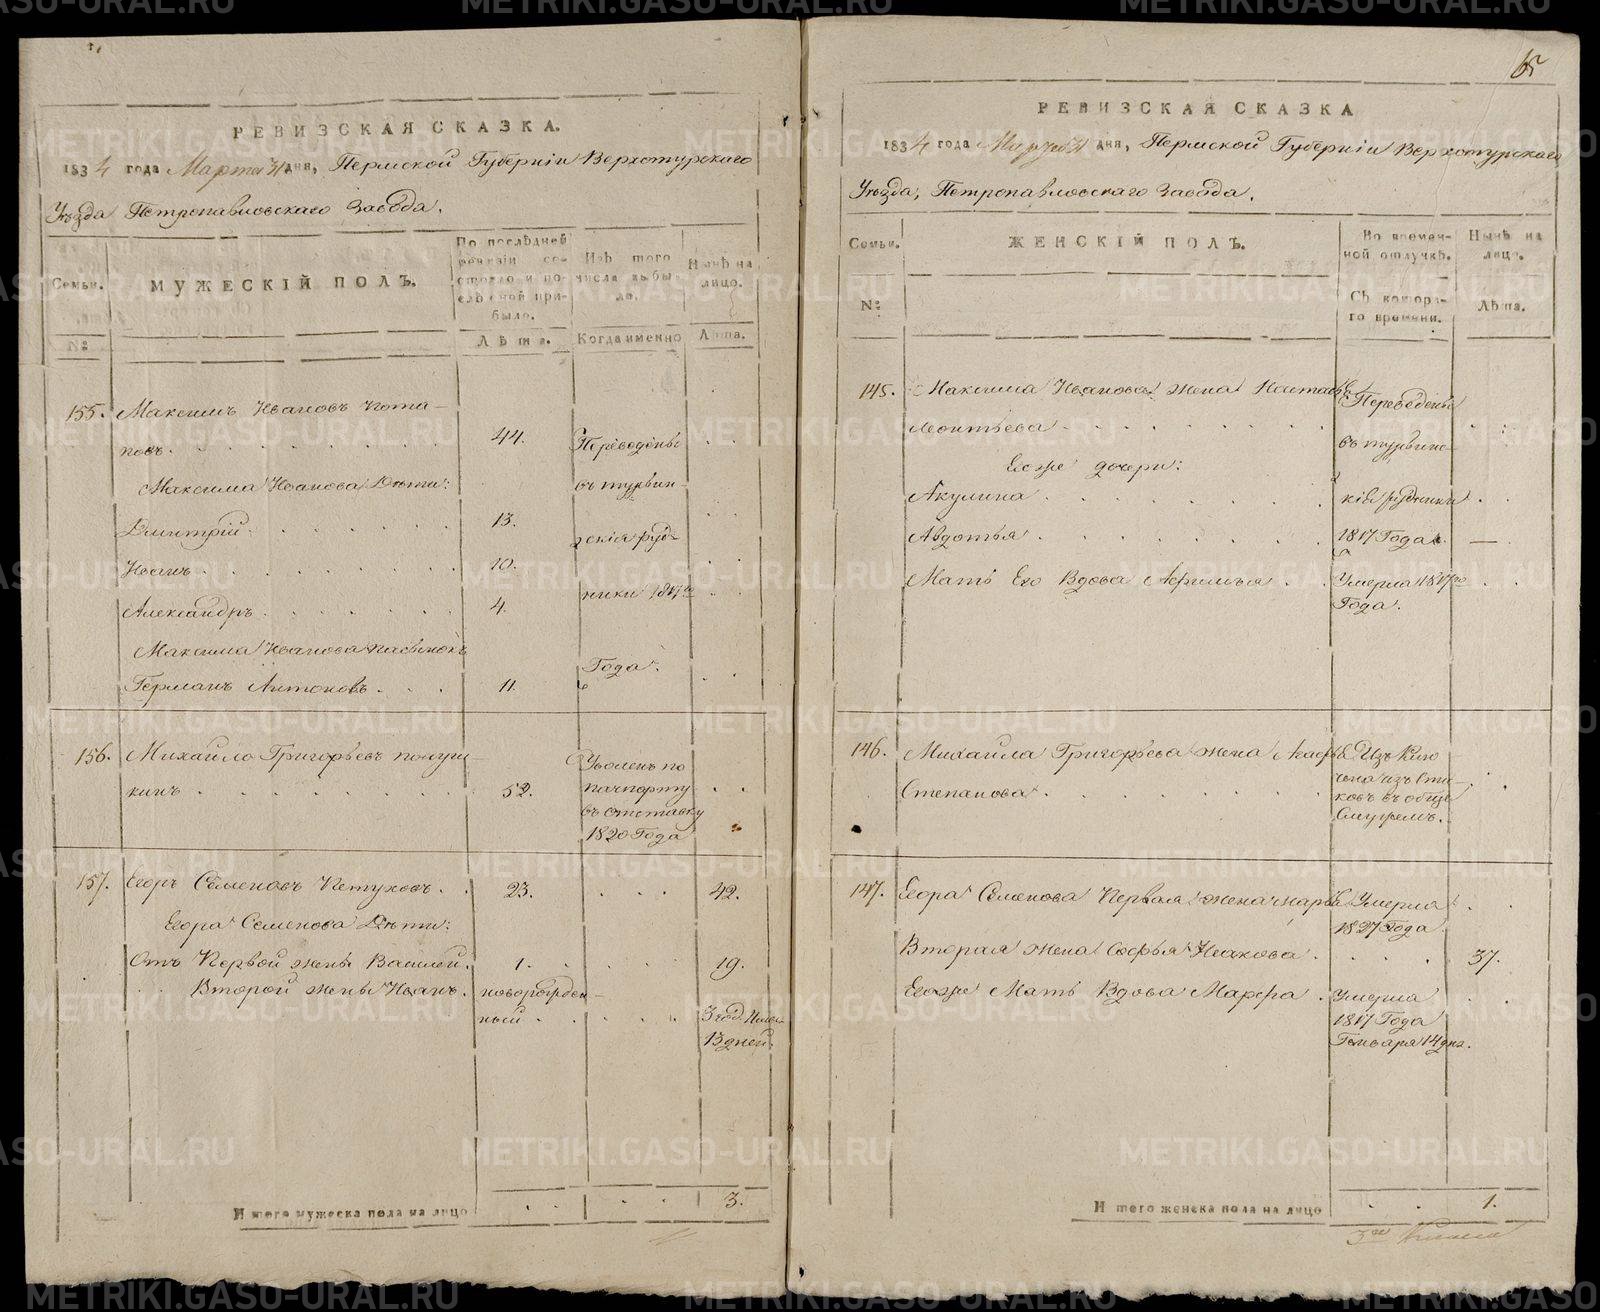 РЕВИЗСКАЯ СКАЗКА.
1834 года Марта 31 дня, Пермской Губерніи Верхотурскаго
Уѣзда Петропавловскаго Завода.
Семьи.
МУЖЕСКІЙ ПОЛЪ.
По послѣдней ревизіи состояло и послѣ оной прибыло.
Изъ того числа выбыло.
Нынѣ на лицо.
№
Лѣта.
Когда именно
Лѣта.
155. Максимъ Ивановъ Пота-
повъ. 44. Переведены
Максима Иванова Дѣти: въ турьин-
Дмитрій 13. скія руд-
Иванъ. 10.
Александръ. 4. ники 1817го
Максима Иванова пасынокъ Года.
Германъ Антоновъ. 11.
156. Михайло Григорьевъ
кинъ 52. Уволенъ по
пачпорту
въ отставку
1820 Года
157. Егоръ Семеновъ Петуховъ. 23. 42.
Егора Семенова Дѣти:
Отъ Первой жены Василей. 1. 19.
Второй жены Иванъ. новорожден-
ный 3 год.
13 дней.
И того мужеска пола на лицо 3.
65
РЕВИЗСКАЯ СКАЗКА
1834 года Марта 31 дня, Пермской Губерніи Верхотурскаго
Уѣзда, Петропавловскаго Завода.
Семьи.
ЖЕНСКІЙ ПОЛЪ.
Во временной отлучкѣ.
Нынѣ на лицо.
№
Съ котораго времени.
Лѣта.
145. Максима Иванова жена Настасья Переведены
Леонтьева въ турьинс-
Его же дочери:
Акулина кіе рудники
Авдотья 1817 Года.
Мать Его Вдова Афимья Умерла 1817го
Года.
146. Михайла Григорьева жена Агафья
Степанова.
147. Егора Семенова Первая жена Марья Умерла
1827 Года
Вторая жена Софья Исакова. 37.
Его же Мать Вдова Марфа Умерла
1817 Года
Генваря 14 дня.
И того женска пола на лицо 1.